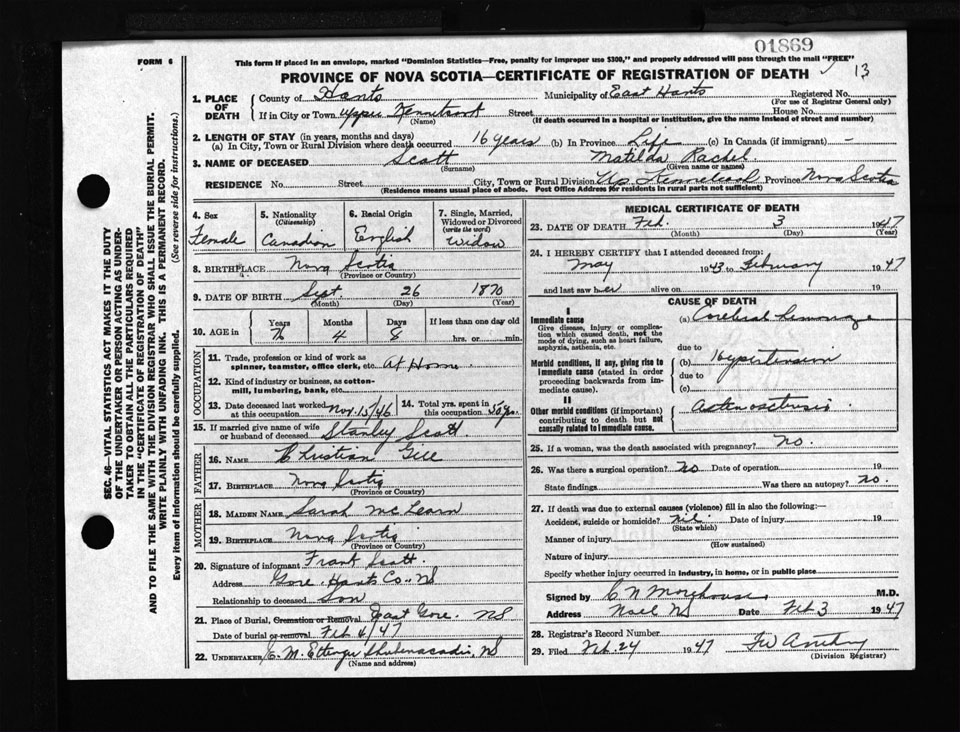 01869
FORM 6
This form if placed in an envelope, marked "Dominion Statistics—Free, penalty for improper use $300," and properly addressed will pass through the mail "FREE"
PROVINCE OF NOVA SCOTIA—CERTIFICATE OF REGISTRATION OF DEATH
13
1. PLACE OF DEATH
County of Hants Municipality of East Hants Registered No.
(For use of Registrar General only)
If in City or Town Upper Kennetcook Street House No.
(Name) (If death occurred in a hospital or institution, give the name instead of street and number)
2. LENGTH OF STAY (in years, months and days)
(a) In City, Town or Rural Division where death occurred 16 years (b) In Province Life (c) In Canada (if immigrant) -
3. NAME OF DECEASED Scott Matilda Rachel
(Surname) (Given name or names)
RESIDENCE No. Street City, Town or Rural Division Up. Province Nova Scotia
(Residence means usual place of abode. Post Office Address for residents in rural parts not sufficient)
4. Sex Female
5. Nationality (Citizenship) Canadian
6. Racial Origin English
7. Single, Married, Widowed or Divorced (write the word) Widow
8. BIRTHPLACE Nova Scotia
(Province or Country)
9. DATE OF BIRTH Sept. 26 1870
(Month) (Day) (Year)
10. AGE in Years 76 Months 4 Days 8 If less than one day old hrs. or min.
OCCUPATION
11. Trade, profession or kind of work as spinner, teamster, office clerk, etc. At Home
12. Kind of industry or business, as cotton-mill, lumbering, bank, etc.
13. Date deceased last worked at this occupation Nov. 15/46
14. Total yrs. spent in this occupation 50 yrs.
15. If married give name of wife or husband of deceased Stanley Scott
FATHER
16. NAME Christian Gill
17. BIRTHPLACE Nova Scotia
(Province or Country)
MOTHER
18. MAIDEN NAME Sarah McLearn
19. BIRTHPLACE Nova Scotia
(Province or Country)
20. Signature of informant Frank Scott
Address Gore Hants Co. NS
Relationship to deceased Son
21. Place of Burial, Cremation or Removal East Gore. NS
Date of burial or removal Feb 4/47
22. UNDERTAKER C. M. Ettinger Shubenacadie, NS
(Name and address)
MEDICAL CERTIFICATE OF DEATH
23. DATE OF DEATH Feb. 3 1947
(Month) (Day) (Year)
24. I HEREBY CERTIFY that I attended deceased from:
May 1943 to February 1947
and last saw her alive on 19
CAUSE OF DEATH
I
Immediate cause
Give disease, injury or complication which caused death, not the mode of dying, such as heart failure, asphyxia, asthenia, etc.
(a) Cerebral
due to
Morbid conditions, if any, giving rise to immediate cause (stated in order proceeding backwards from immediate cause).
(b) Hypertension
due to
(c)
II
Other morbid conditions (if important) contributing to death but not causally related to immediate cause.
25. If a woman, was the death associated with pregnancy? No.
26. Was there a surgical operation? No Date of operation 19
State findings Was there an autopsy? No.
27. If death was due to external causes (violence) fill in also the following:—
Accident, suicide or homicide? Nil Date of injury 19
(State which)
Manner of injury
(How sustained)
Nature of injury
Specify whether injury occurred in industry, in home, or in public place
Signed by C N Morehouse M.D.
Address Noel NS Date Feb 3 1947
28. Registrar's Record Number
29. Filed Feb. 24 1947
(Division Registrar)
SEC. 46—VITAL STATISTICS ACT MAKES IT THE DUTY
OF THE UNDERTAKER OR PERSON ACTING AS UNDER-
TAKER TO OBTAIN ALL THE PARTICULARS REQUIRED
IN THE "CERTIFICATE OF REGISTRATION OF DEATH"
AND TO FILE THE SAME WITH THE DIVISION REGISTRAR WHO SHALL ISSUE THE BURIAL PERMIT.
WRITE PLAINLY WITH UNFADING INK. THIS IS A PERMANENT RECORD.
Every item of information should be carefully supplied. (See reverse side for instructions.)